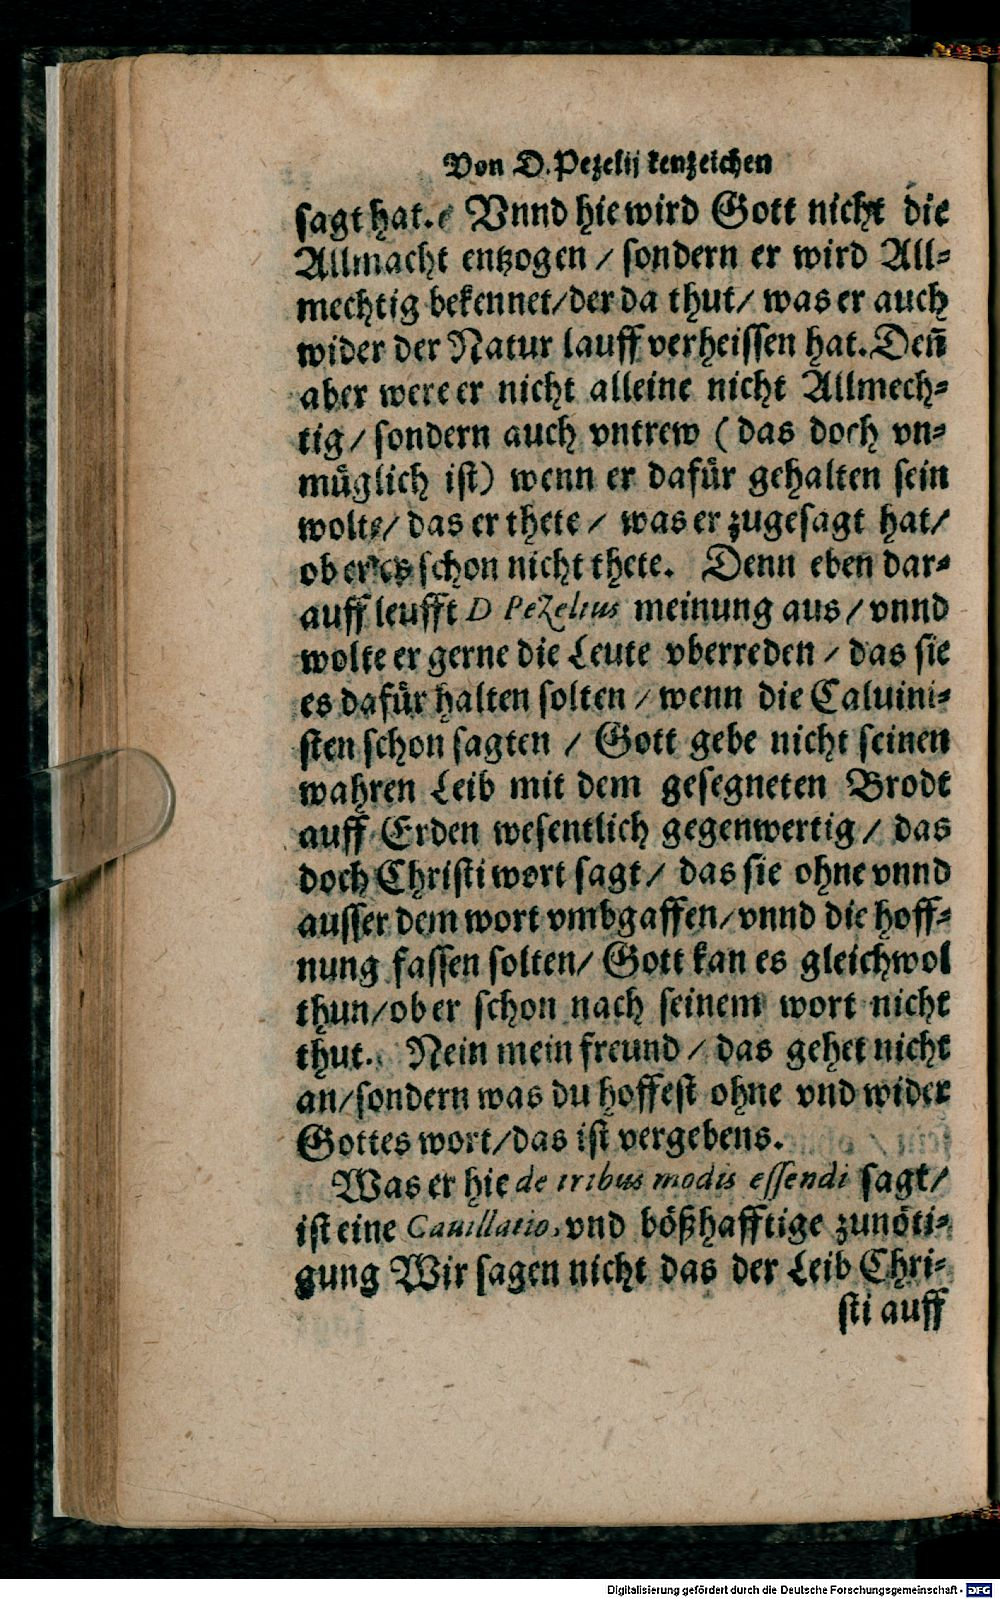 Von D. Pezelij kenzeichen
sagt hat. Vnnd hie wird Gott nicht die
Allmacht entzogen / sondern er wird All⸗
mechtig bekennet/ der da thut/ was er auch
wider der Natur lauff verheissen hat. Deñ
aber were er nicht alleine nicht Allmech⸗
tig/ sondern auch vntrew (das doch vn⸗
müglich ist) wenn er dafür gehalten sein
wolte/ das er thete / was er zugesagt hat/
ob er es schon nicht thete. Denn eben dar⸗
auff leufft D Pezelius meinung aus/ vnnd
wolte er gerne die Leute vberreden / das sie
es dafür halten solten / wenn die Caluini⸗
sten schon sagten / Gott gebe nicht seinen
wahren Leib mit dem gesegneten Brodt
auff Erden wesentlich gegenwertig/ das
doch Christi wort sagt/ das sie ohne vnnd
ausser dem wort vmbgaffen/ vnnd die hoff⸗
nung fassen solten/ Gott kan es gleichwol
thun/ ob er schon nach seinem wort nicht
thut. Nein mein freund / das gehet nicht
an/ sondern was du hoffest ohne vnd wider
Gottes wort/ das ist vergebens.
Was er hie de tribus modis essendi sagt/
ist eine Cauillatio, vnd bößhafftige zunöti⸗
gung Wir sagen nicht das der Leib Chri⸗
sti auff
Digitalisierung gefördert durch die Deutsche Forschungsgemeinschaft - DFG